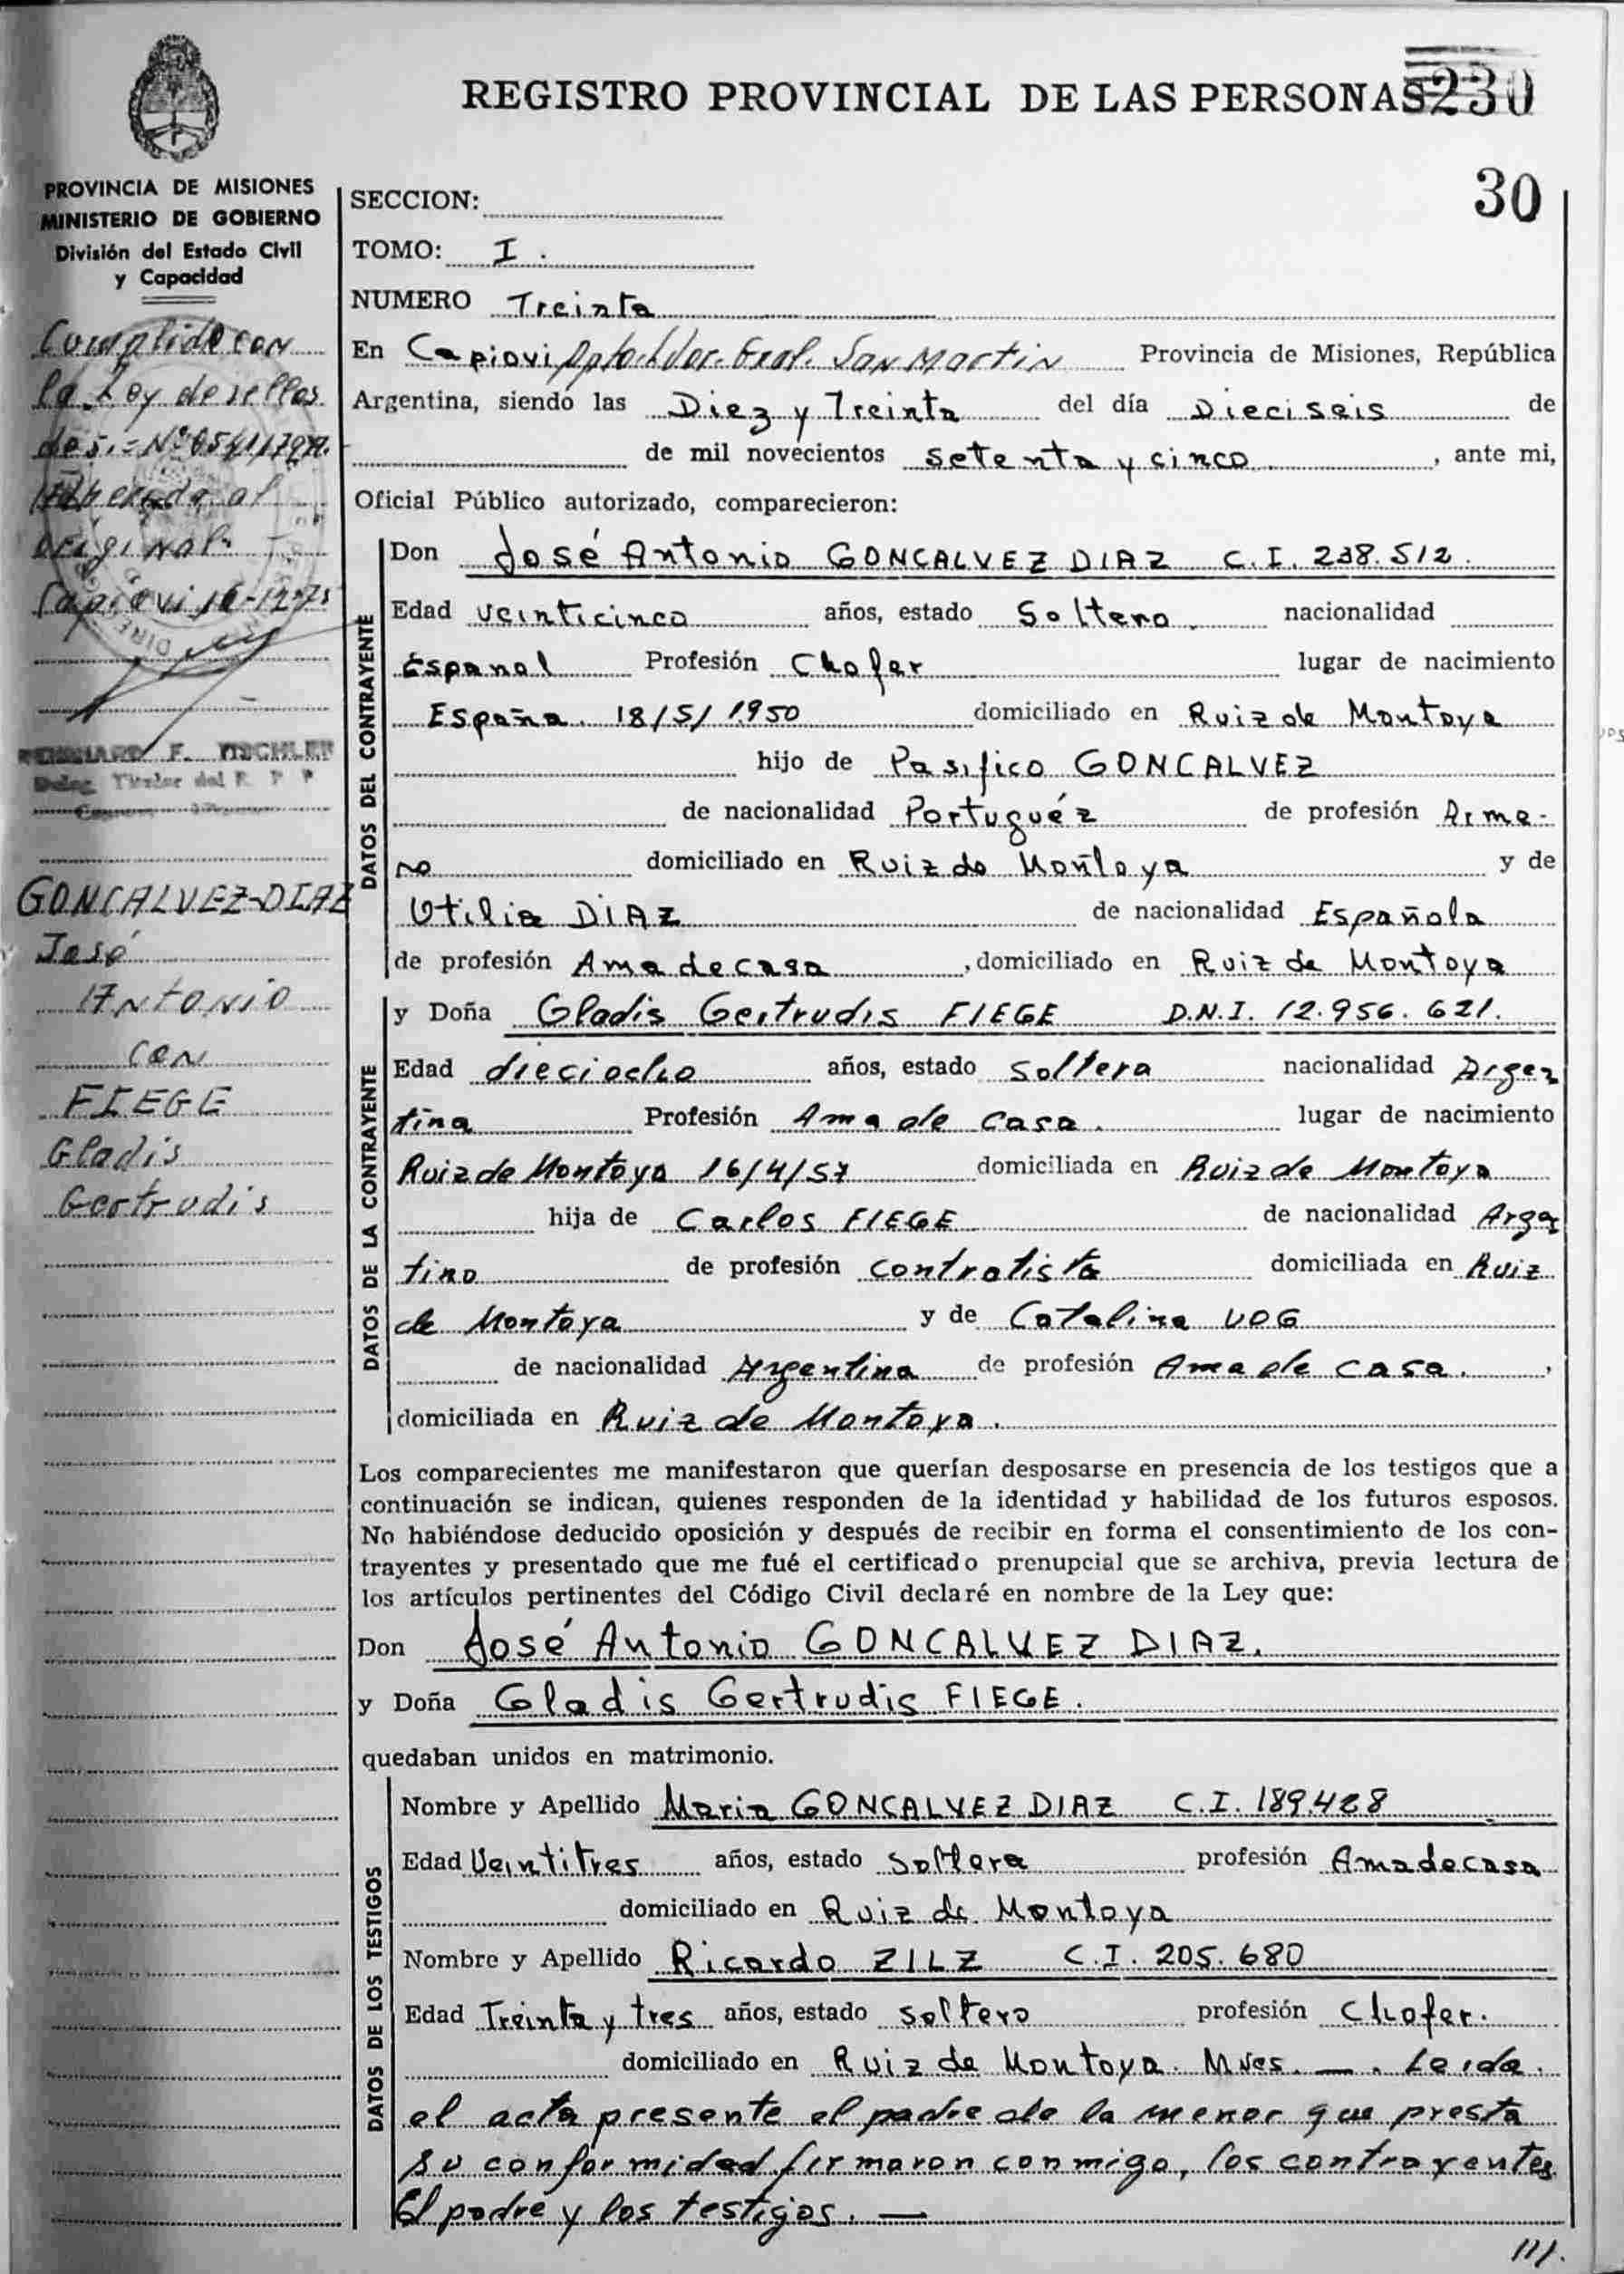 REGISTRO PROVINCIAL DE LAS PERSONAS
230
30
PROVINCIA DE MISIONES
MINISTERIO DE GOBIERNO
División del Estado Civil
y Capacidad
Cumplido con
la Ley de sellos
original
Capiovi 16-12-75
F. TISCHLER
GONCALVEZ-DIAZ
José
Antonio
con
FIEGE
Gladis
Gertrudis
SECCION:
TOMO: I.
NUMERO Treinta
En Capiovi Dpto. Ldor. Gral. San Martin Provincia de Misiones, República
Argentina, siendo las Diez y Treinta del día Dieciseis de
de mil novecientos setenta y cinco, ante mi,
Oficial Público autorizado, comparecieron:
DATOS DEL CONTRAYENTE
Don José Antonio GONCALVEZ DIAZ C.I. 238.512.
Edad veinticinco años, estado Soltero. nacionalidad
Espanol Profesión Chofer lugar de nacimiento
España. 18/5/1950 domiciliado en Ruiz de Montoya
hijo de Pasifico GONCALVEZ
de nacionalidad Portuguéz de profesión Arme-
ro domiciliado en Ruiz de Montoya y de
Utilia DIAZ de nacionalidad Española
de profesión Ama de casa, domiciliado en Ruiz de Montoya
DATOS DE LA CONTRAYENTE
y Doña Gladis Gertrudis FIEGE D.N.I. 12.956.621.
Edad dieciocho años, estado soltera nacionalidad Argen
tina Profesión Ama de casa. lugar de nacimiento
Ruiz de Montoya 16/4/57 domiciliada en Ruiz de Montoya
hija de Carlos FIEGE de nacionalidad Argen
tino de profesión contratista domiciliada en Ruiz
de Montoya y de Catalina VOG
de nacionalidad Argentina de profesión Ama de casa.,
domiciliada en Ruiz de Montoya.
Los comparecientes me manifestaron que querían desposarse en presencia de los testigos que a
continuación se indican, quienes responden de la identidad y habilidad de los futuros esposos.
No habiéndose deducido oposición y después de recibir en forma el consentimiento de los con-
trayentes y presentado que me fué el certificado prenupcial que se archiva, previa lectura de
los artículos pertinentes del Código Civil declaré en nombre de la Ley que:
Don José Antonio GONCALVEZ DIAZ.
y Doña Gladis Gertrudis FIEGE.
quedaban unidos en matrimonio.
DATOS DE LOS TESTIGOS
Nombre y Apellido Maria GONCALVEZ DIAZ C.I. 189.428
Edad Veintitres años, estado Soltera profesión Ama de casa
domiciliado en Ruiz de Montoya
Nombre y Apellido Ricardo ZILZ C.I. 205.680
Edad Treinta y tres años, estado soltero profesión Chofer.
domiciliado en Ruiz de Montoya. Mnes. —. Leida.
el acta presente el padre de la menor que presta
su conformidad firmaron conmigo, los contrayentes
El padre y los testigos. —
///.